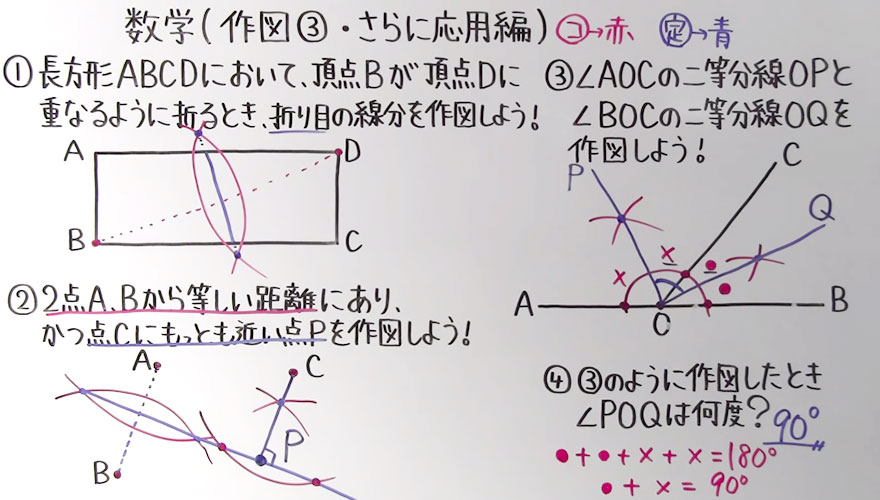 数学(作図③・さらに応用編) コ→赤 定→青
①長方形ABCDにおいて、頂点Bが頂点Dに
重なるように折るとき、折り目の線分を作図しよう!
A
D
B
C
②2点A、Bから等しい距離にあり、
かつ点Cにもっとも近い点Pを作図しよう!
A
C
B
P
③∠AOCの二等分線OPと
∠BOCの二等分線OQを
作図しよう!
P
C
Q
× × • •
A
O
B
④③のように作図したとき
∠POQは何度? 90°
•+•+×+×=180°
•+×=90°